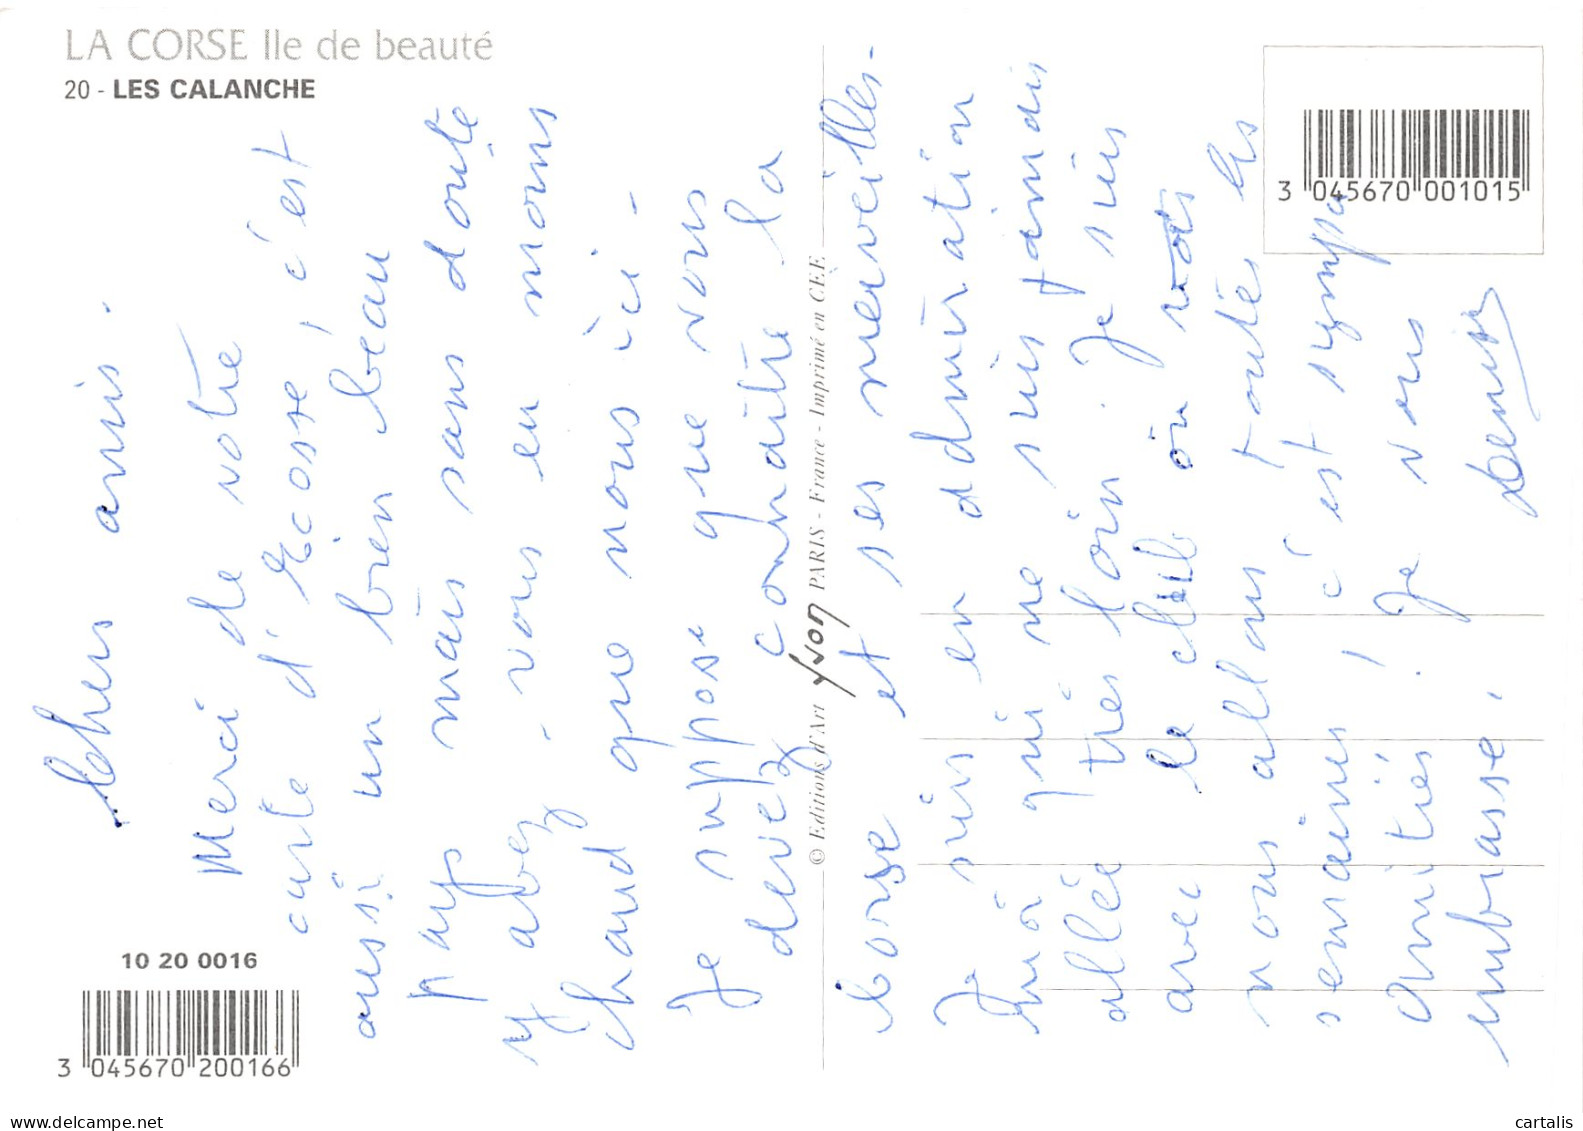 LA CORSE Ile de beauté
20 - LES CALANCHE
Chers amis.
Merci de votre
carte d'Ecosse, c'est
aussi un bien beau
pays mais sans doute
y avez-vous eu moins
chaud que nous ici -
Je suppose que vous
devez connaître la
Corse et ses merveilles -
Je suis en admiration
moi qui ne suis jamais
allée très loin. Je suis
avec le club où
nous allons toutes les
semaines! c'est sympa
Amitiés! Je vous
embrasse. Denise
© Editions d'Art Yvon PARIS - France - Imprimé en CEE
3 045670 001015
10 20 0016
3 045670 200166
delcampe.net
cartalis